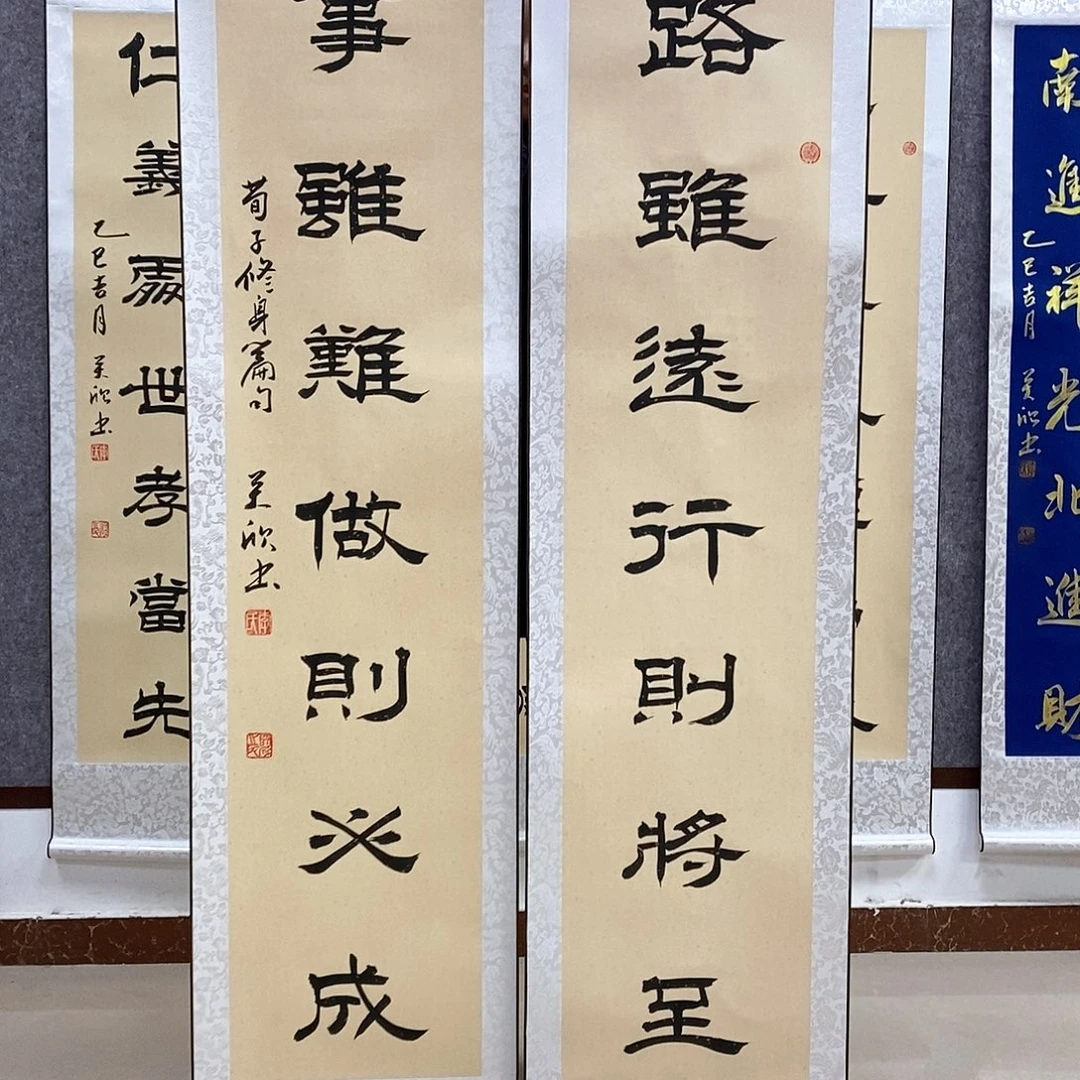 南進祥光北進財
乙巳吉月 欣书
路雖遠行則將至
事雖難做則必成
荀子修身篇句 欣书
仁義處世孝當先
乙巳吉月 欣书